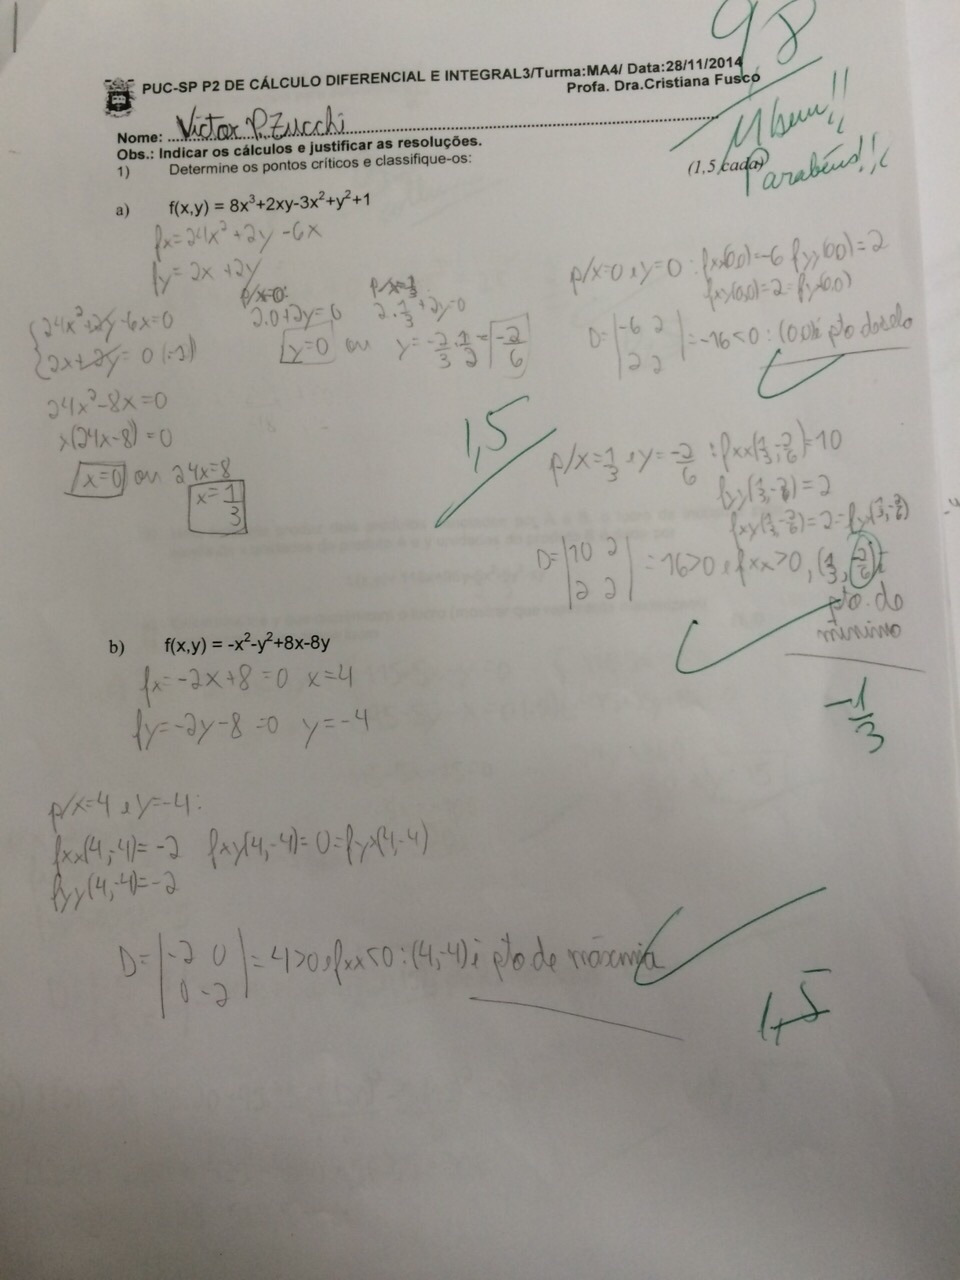 9,8
PUC-SP P2 DE CÁLCULO DIFERENCIAL E INTEGRAL3/Turma:MA4/ Data:28/11/2014
Profa. Dra.Cristiana Fusco
Nome: Victor P. Zucchi
M bem!!
Parabéns!!
Obs.: Indicar os cálculos e justificar as resoluções.
1) Determine os pontos críticos e classifique-os: (1,5 cada)
a) f(x,y) = 8x³+2xy-3x²+y²+1
fx=24x²+2y-6x
fy=2x+2y
{24x²+2y-6x=0
{2x+2y=0 (-1)
24x²-8x=0
x(24x-8)=0
x=0 ou 24x=8
x=1/3
p/x=0:
2.0+2y=0
y=0 ou
p/x=1/3
2.1/3+2y=0
y=-2/3.1/2=-2/6
p/x=0 e y=0: fxx(0,0)=-6 fyy(0,0)=2
fxy(0,0)=2=fyx(0,0)
D=|-6 2|=-16<0: (0,0) é pto de sela
|2 2|
1,5
p/x=1/3 e y=-2/6: fxx(1/3,-2/6)=10
fyy(1/3,-2/6)=2
fxy(1/3,-2/6)=2=fyx(1/3,-2/6)
D=|10 2|=16>0 e fxx>0, (1/3,-2/6) é
|2 2|
pto. de
mínimo
-1/3
b) f(x,y) = -x²-y²+8x-8y
fx=-2x+8=0 x=4
fy=-2y-8=0 y=-4
p/x=4 e y=-4:
fxx(4,-4)=-2 fxy(4,-4)=0=fyx(4,-4)
fyy(4,-4)=-2
D=|-2 0|=4>0 e fxx<0: (4,-4) é pto de
|0 -2|
1,5